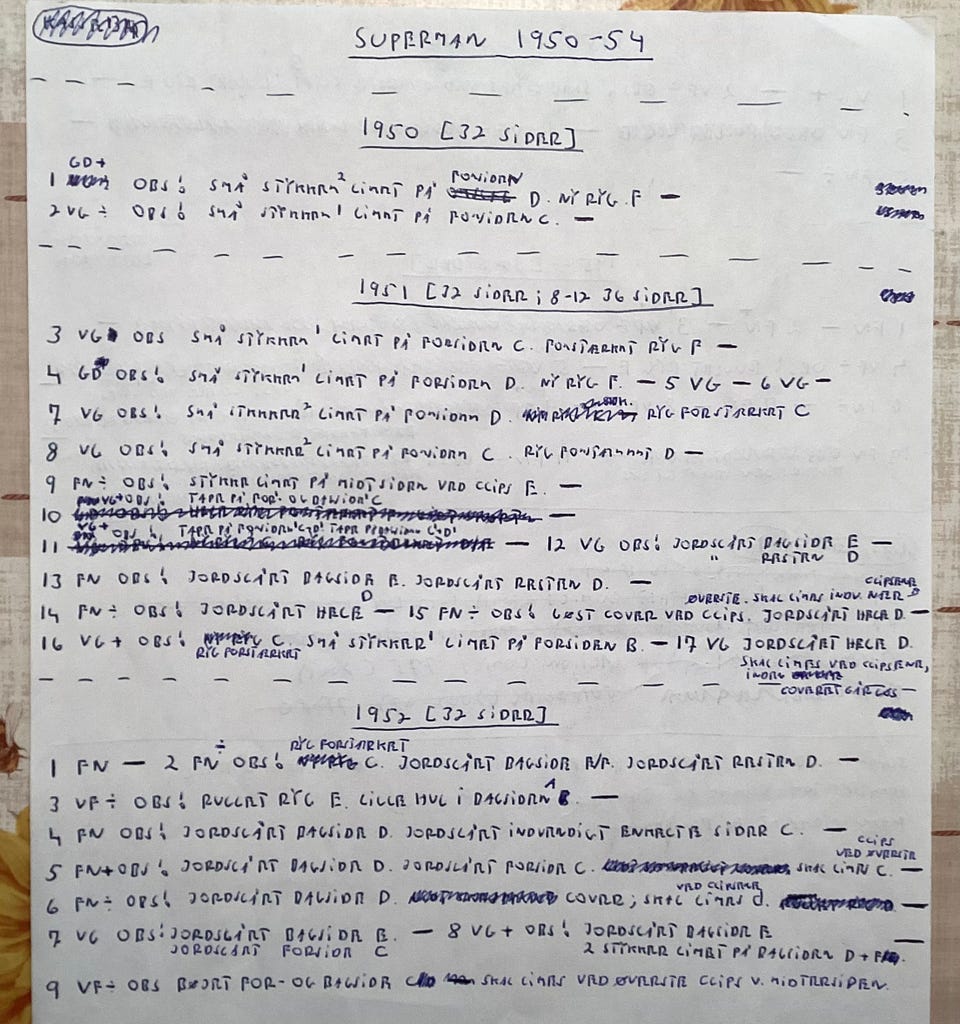 SUPERMAN 1950-54
1950 [32 SiDER]
GD+
FORSIDEN
1 OBS! SMÅ STYKKER² LIMET PÅ D. NY RYG. F —
2 VG ÷ OBS! SMÅ STYKKER' LIMET PÅ FORSIDEN C. —
1951 [32 SiDER; 8-12 36 SiDER]
3 VG OBS SMÅ STYKKER' LIMET PÅ FORSIDEN C. FORSTÆRKET RYG F —
4 GD OBS! SMÅ STYKKER' LIMET PÅ FORSIDEN D. NY RYG F. — 5 VG — 6 VG —
7 VG OBS! SMÅ STYKKER² LIMET PÅ FORSIDEN D. RYG FORSTÆRKET C
8 VG OBS! SMÅ STYKKER² LIMET PÅ FORSIDEN C. RYG FORSTÆRKET D —
9 FN ÷ OBS! STYKKER LIMET PÅ MIDTSIDEN VED CLIPS E. —
VG+ OBS! TAPE PÅ FOR- OG BAGSIDE' C
10 —
VG+ OBS! TAPE PÅ FORSIDEN 'C+D' TAPE PÅ 'C+D'
11 — 12 VG OBS! JORDSLÅET BAGSIDE E —
" RESTEN D
13 FN OBS! JORDSLÅET BAGSIDE E. JORDSLÅET RESTEN D. —
D
ØVERSTE. SKAL LIMES INDV. CLIPSENE
14 FN ÷ OBS! JORDSLÅET HELE — 15 FN ÷ OBS! LØST COVER VED CLIPS. JORDSLÅET HELE D. —
16 VG + OBS! C. SMÅ STYKKER' LIMET PÅ FORSIDEN B. — 17 VG JORDSLÅET HELE D.
RYG FORSTÆRKET
SKAL LIMES VED CLIPSENE,
INDEN
COVERET GÅR LØS —
1952 [32 SiDER]
÷ RYG FORSTÆRKET
1 FN — 2 FN OBS! C. JORDSLÅET BAGSIDE E/F. JORDSLÅET RESTEN D. —
A
3 VF ÷ OBS! RULLET RYG E. LILLE HUL i BAGSIDEN —
4 FN OBS! JORDSLÅET BAGSIDE D. JORDSLÅET INDVENDIGT ENKELTE SIDER C. —
CLIPS
VED ØVERSTE
5 FN+ OBS! JORDSLÅET BAGSIDE D. JORDSLÅET FORSIDE C. SKAL LIMES C. —
VED CLIPSENE
6 FN÷ OBS! JORDSLÅET BAGSIDE D. COVER; SKAL LIMES C. —
7 VG OBS! JORDSLÅET BAGSIDE E. — 8 VG + OBS! JORDSLÅET BAGSIDE E —
JORDSLÅET FORSIDE C 2 STYKKER LIMET PÅ BAGSIDEN D +
9 VF÷ OBS BØJET FOR- OG BAGSIDE C SKAL LIMES VED ØVERSTE CLIPS V. MIDTERSIDEN.